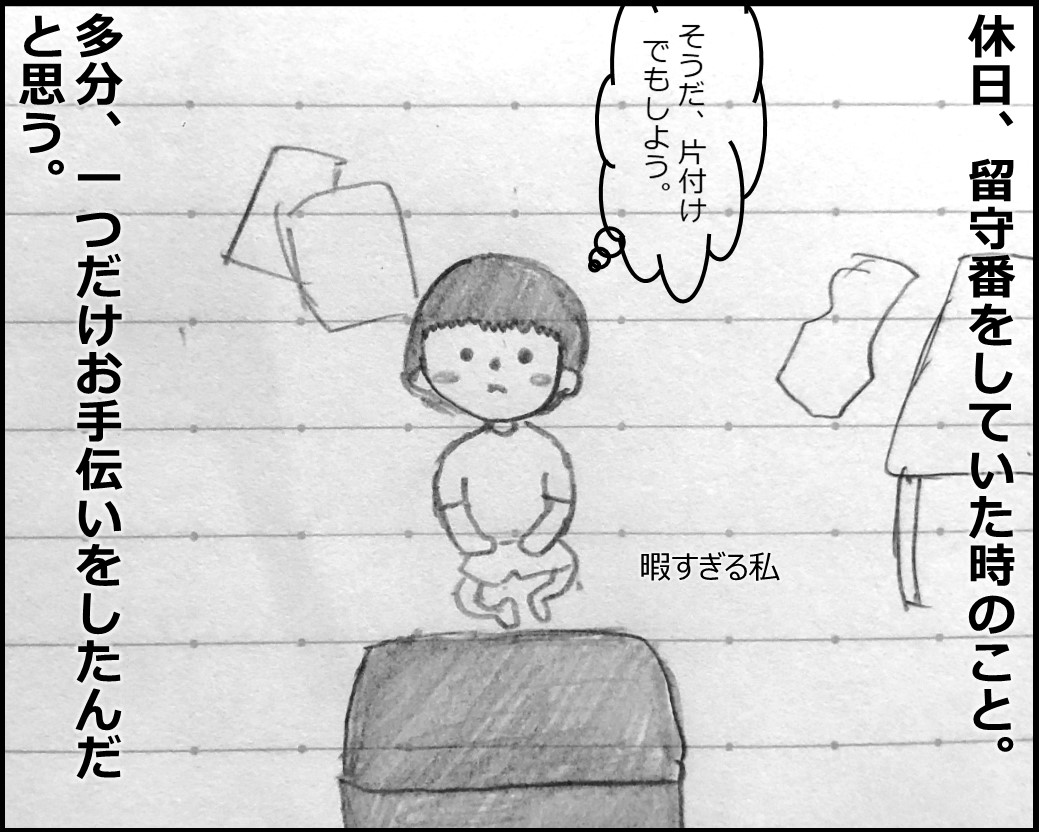 休日、留守番をしていた時のこと。
そうだ、片付け
でもしよう。
暇すぎる私
多分、一つだけお手伝いをしたんだ
と思う。